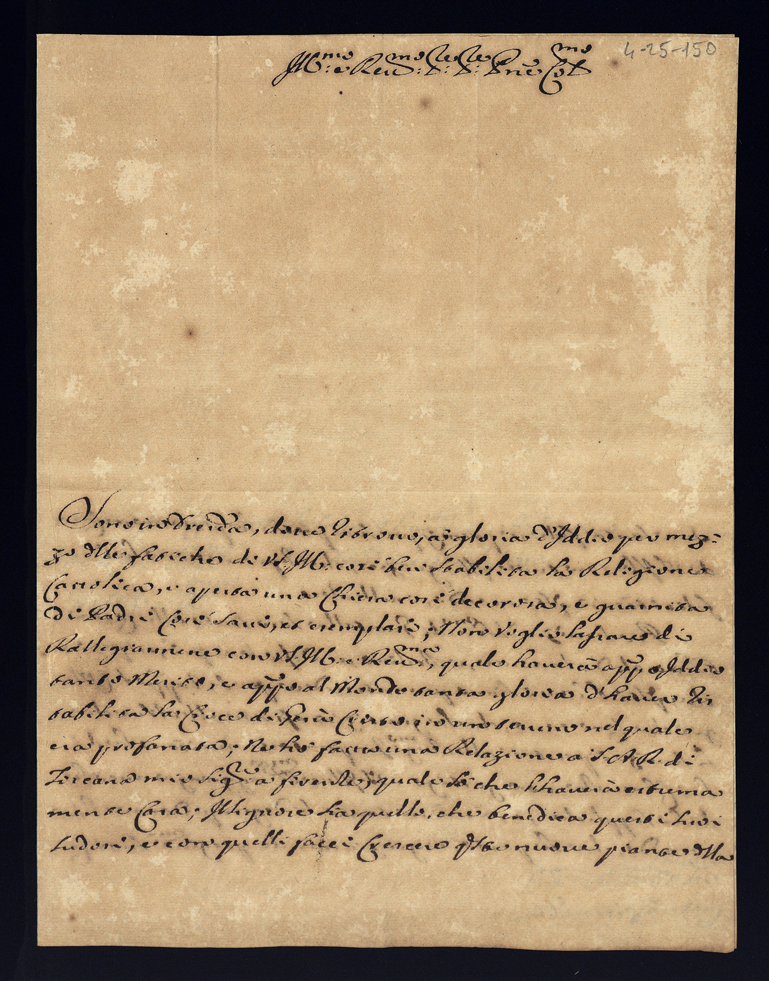 4-25-150
Ill:mo e Reu:mo Sig:re Sig:re Prne Col:mo
Sono in Dresda, doue ritrouo, à gloria d'Iddio per mez=
zo dlle fatiche di VS Ill: così ben stabilita la Religione
Cattolica, e aperta una Chiesa così decorosa, e guarnita
di Padri così sauij, et esemplari; Non voglio lasciare di
Rallegrarmene con VS Ill: e Reu:ma, quale hauerà app:o Iddio
tanto Merito, e app:o al Mondo tanta gloria d'hauer ris
tabilita la Croce di Giesù Cristo in un terreno nel quale
era profanata; Ne hò fatto una Relazione a S. A. R. di
Toscana mio Sig:re a Firenze, quale sò che l'hauerà estrema
mente Cara; Il Signore sia quello, che benedica questi suoi
sudori, e con quelli facci Crescere q:ste nuoue piante dlla